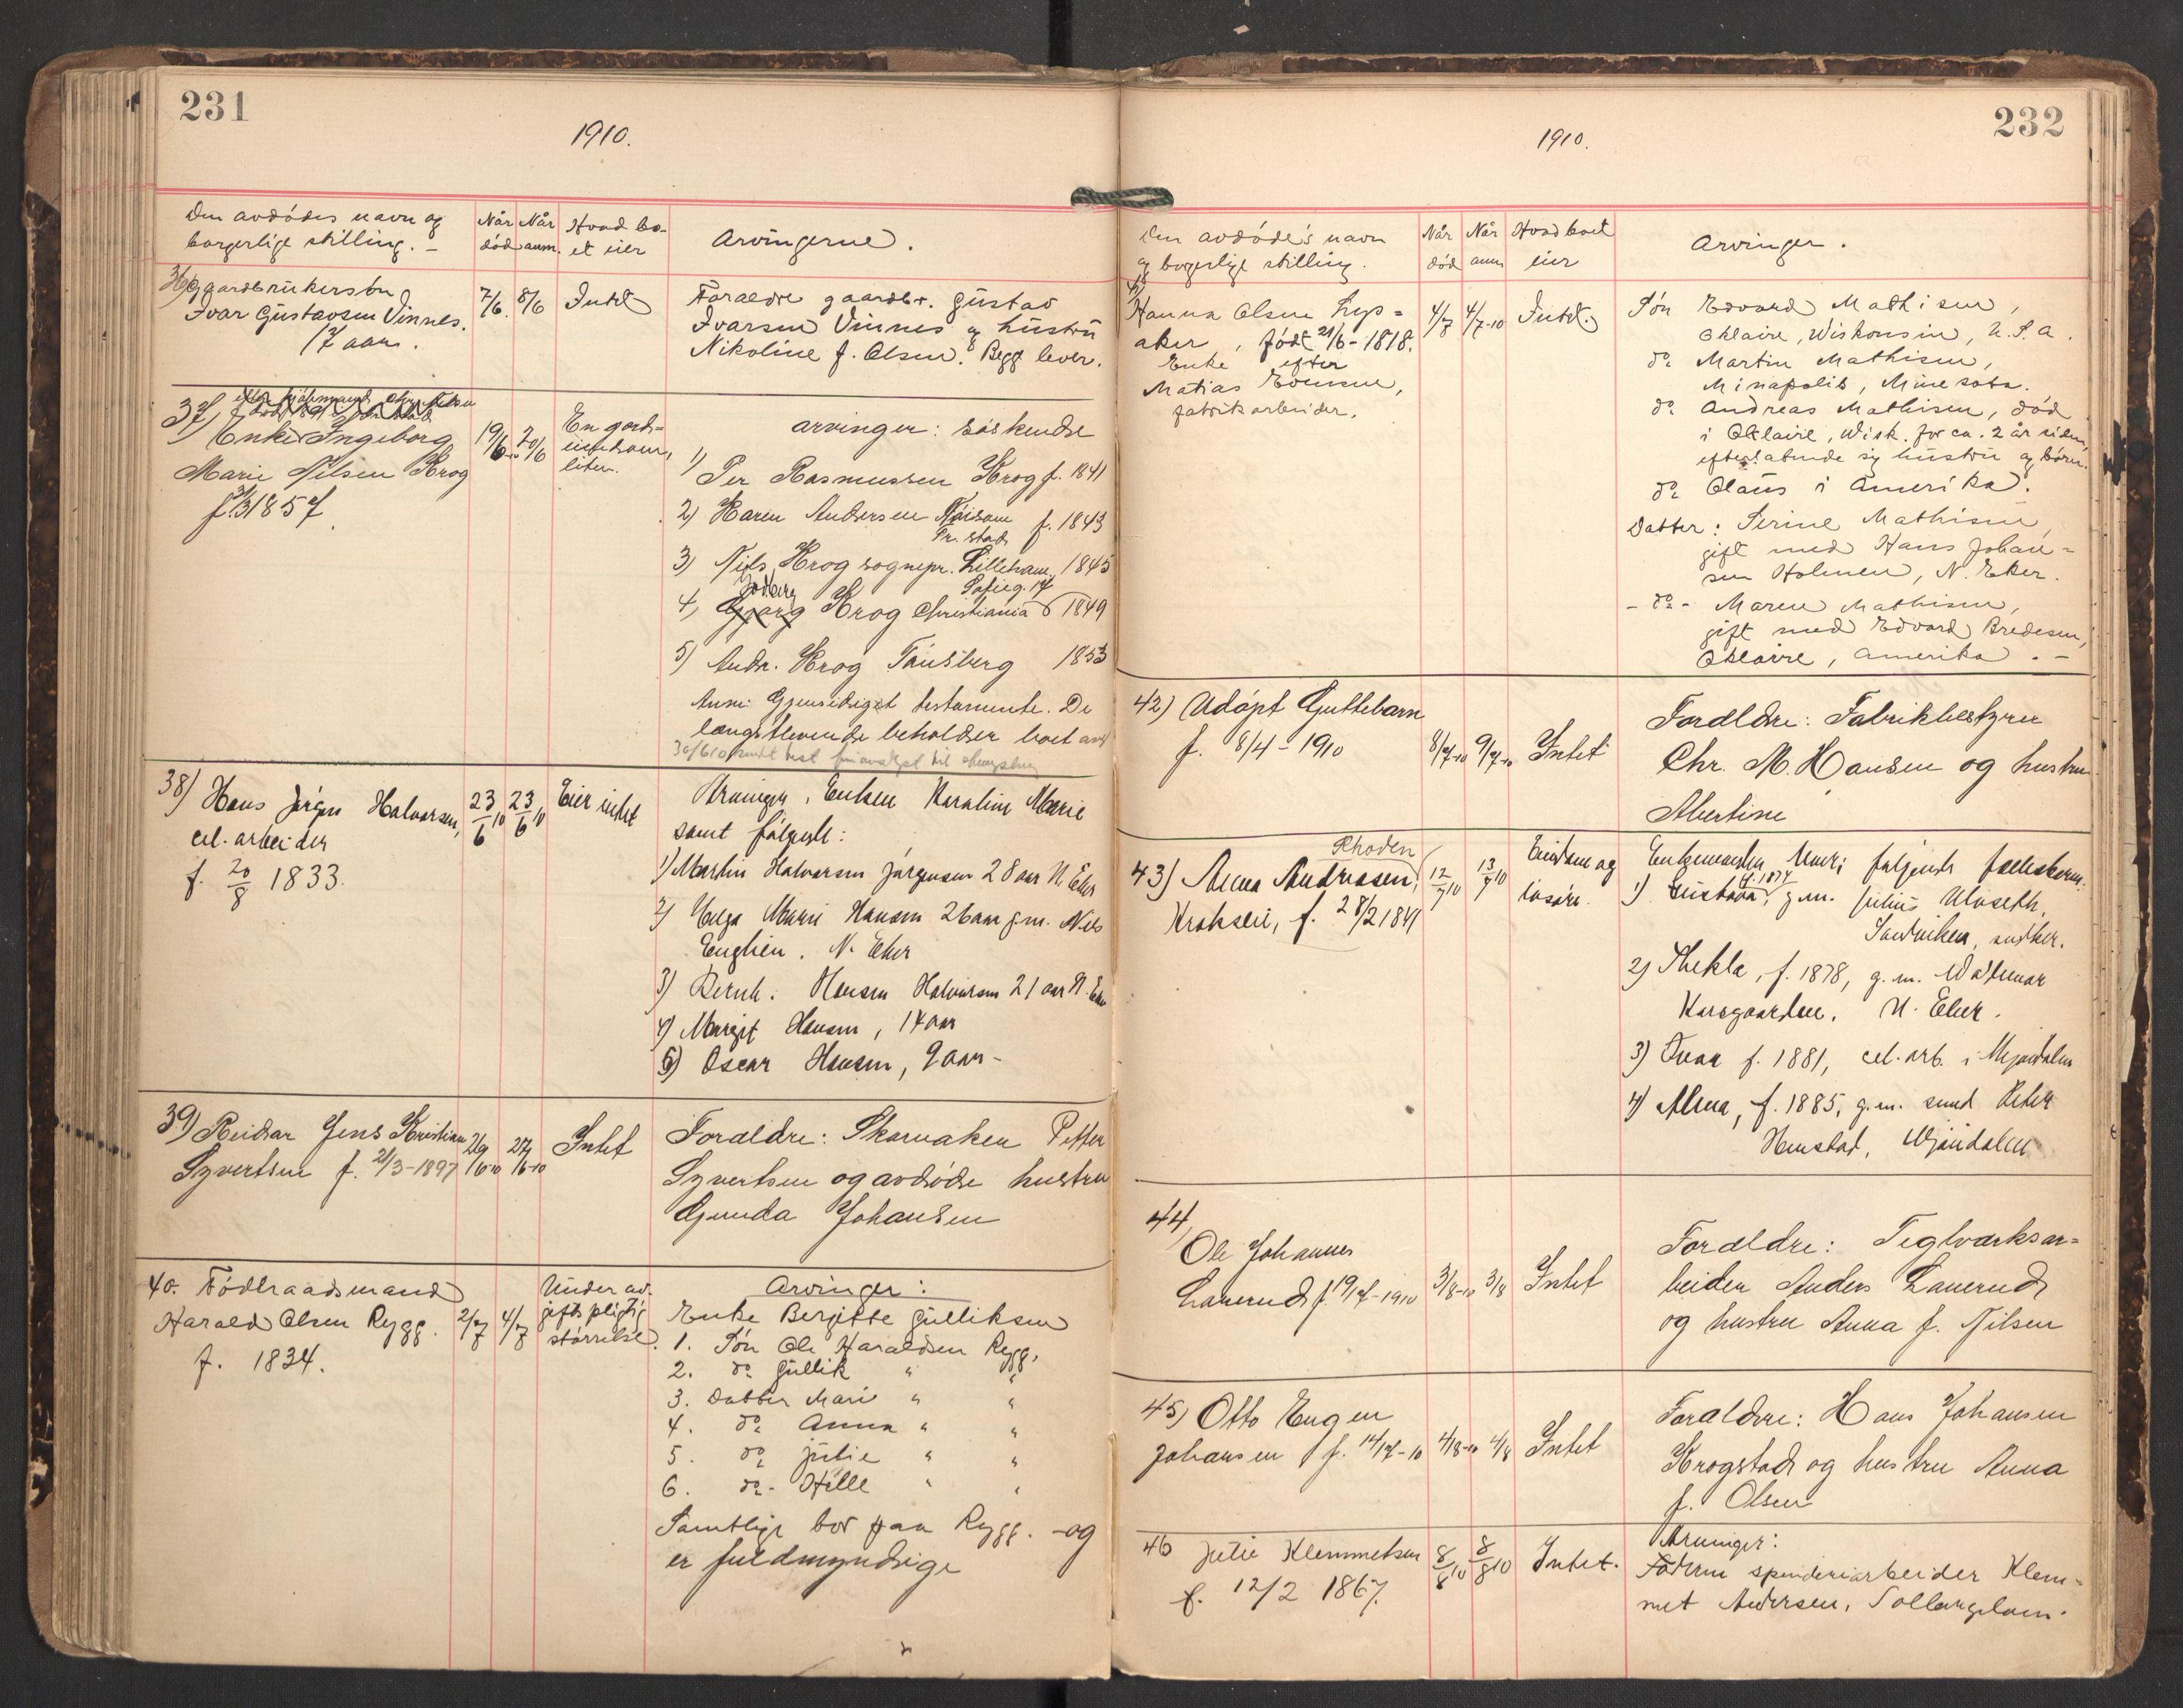 231
1910.
Den avdødes navn og
borgerlige stilling. -
Når
død
Når
anm.
Hvad bo-
et eier
Arvingerne.
36) Gaardbrukersøn
Ivar Gustavsen Vinnes.
17 aar.
7/6.
8/6
Intet
Foraeldre gaardbr. Gustav
Ivarsen Vinnes og hustru
Nikoline f. Olsen. Begge lever.
37)
Enke Ingeborg
Marie Nilsen Krog
f. 31/3 1857
19/6-10
20/6
En gard-
liten.
arvinger: søskende
1) Per Rasmussen Krog f. 1841
2) Karen Andersen
Fr.stad f. 1843
3) Nils Krog sognepr. Lilleham. 1845
Sofieg. 14
4) Krog Christiania 1849
5) Andr. Krog Tønsberg 1853
Anm: Gjensidigt testamente. De
laengstlevende beholder boet
38) Hans Jørgen Halvorsen,
cel. arbeider
f. 20/8 1833.
23/6 10
23/6 10
Eier intet
Arvinger, Enken Karoline Marie
samt følgende:
1) Martin Halvorsen Jørgensen 28 aar N. Eker
2) Helga Marie Hansen 26 aar g.m. Nils
Englien. N. Eker
3) Bernh. Hansen Halvorsen 21 aar N. Eker
4) Margit Hansen, 14 aar
5) Oscar Hansen, 9 aar -
39) Reidar Jens Kristian
Syvertsen f. 21/3-1897
26/6-10
27/6-10
Intet
Foraldre: Skomaker Petter
Syvertsen og avdøde hustru
Gunda Johansen
40. Födraadsmand
Harald Olsen Rygg.
f. 1834.
2/7
4/7
Under av-
giftspligtig
størrelse.
Arvinger:
Enke Bergitte Gulliksen
1. Søn Ole Haraldsen Rygg,
2. do Gullik " "
3. Datter Mari " "
4. do Anna " "
5. do Julie " "
6. do - Hille " "
Samtlige bor paa Rygg. - og
er fuldmyndige
232
1910.
Den avdøde's navn
og borgerlige stilling.
Når
død
Når
anm
Hvad boet
eier
Arvinger.
41)
Hanna Olsen Lyp=
aker, født 21/6-1818.
Enke efter
Matias Evensen,
fabrikarbeider.
4/7
4/7-10
Intet.
Søn Edvard Mathisen,
Oklaire, Wiskonsin, U.S.A.
do Martin Mathisen,
Minapolis, Minesota.
do Andreas Mathisen, død
i Oklaire, Wisk. for ca. 2 år siden,
efterlatende sig hustru og børn.
do Olaus i Amerika.
Datter: Serine Mathisen,
gift med Hans Johan=
sen Holmen, N. Eker.
- do - Maren Mathisen,
gift med Edvard Bredesen,
Oklaire, Amerika. -
42) Udøpt Guttebarn
f. 8/4-1910
8/7-10
9/7-10
Intet
Foraldre: Fabrikbestyrer
Chr. M. Hansen og hustru
Albertine
43) Anna Andreasen, Rhoden
Krokseie, f. 28/2 1841
12/7 10
13/7 10
Eiendom og
løsøre.
Enkemanden Amt; følgende fællesbarn:
1) Gustava, f. 1874 g.m. Julius Ulvseth,
Sandviken, snekker.
2) Thekla, f. 1878, g.m. Waldemar
Korsgaarden. N. Eker.
3) Ivar f. 1881, cel. arb. i Mjøndalen
4) Alma, f. 1885, g.m. smed Peter
Hemstad, Mjøndalen
44)
Ole Johannes
Lauerud f. 19/7-1910
3/8-10
3/8
Intet
Foraldre: Teglvarksar=
beider Anders Lauerud
og hustru Anna f. Nilsen
45) Otto Eugen
Johansen f. 14/7-10
4/8-10
4/8
Intet
Foraldre: Hans Johansen
Krogstad og hustru Anna
f. Olsen
46 Julie Klemmetsen
f. 12/2 1867.
8/8 10
8/8 10
Intet.
Arvinger:
Faderen spinderiarbeider Klem=
met Andersen,